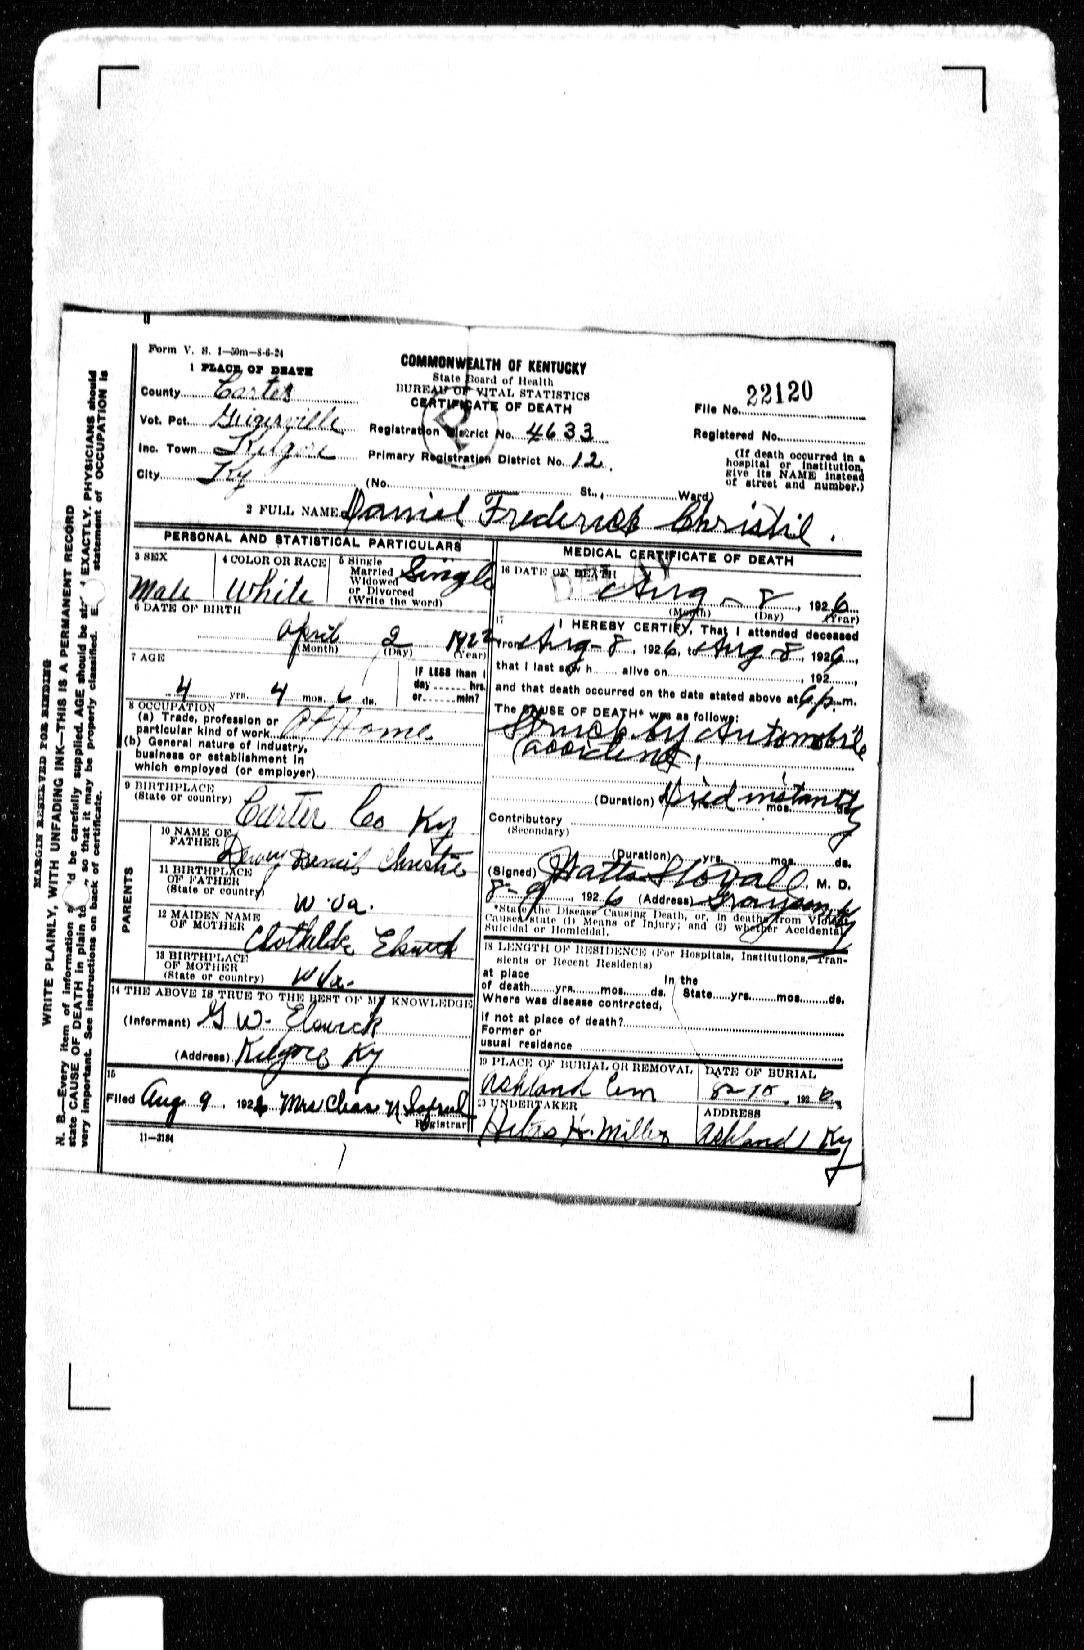 Form V. S. 1—50m—8-6-24
1 PLACE OF DEATH
County Carter
Vot. Pct. Geigerville
Inc. Town Kilgore
City Ky
COMMONWEALTH OF KENTUCKY
State Board of Health
BUREAU OF VITAL STATISTICS
CERTIFICATE OF DEATH
Registration District No. 4633
Primary Registration District No. 12
(No. St., Ward)
File No. 22120
Registered No.
(If death occurred in a
hospital or institution,
give its NAME instead
of street and number.)
2 FULL NAME Daniel Frederick Christil.
PERSONAL AND STATISTICAL PARTICULARS
3 SEX
Male
4 COLOR OR RACE
White
5 Single
Married
Widowed
or Divorced
(Write the word)
Single
6 DATE OF BIRTH
April 2 1922
(Month) (Day) (Year)
7 AGE
4 yrs. 4 mos. 6 ds.
IF LESS than 1
day hrs.
or min?
8 OCCUPATION
(a) Trade, profession or
particular kind of work At Home
(b) General nature of industry,
business or establishment in
which employed (or employer)
9 BIRTHPLACE
(State or country) Carter Co Ky
PARENTS
10 NAME OF
FATHER Dewey Daniel Christie
11 BIRTHPLACE
OF FATHER
(State or country)
W. Va.
12 MAIDEN NAME
OF MOTHER
Clothilde
13 BIRTHPLACE
OF MOTHER
(State or country) W Va.
14 THE ABOVE IS TRUE TO THE BEST OF MY KNOWLEDGE
(Informant) G W.
(Address) Kilgore Ky
15
Filed Aug 9, 1926 Mrs Chas N
Registrar
11—3184
MEDICAL CERTIFICATE OF DEATH
16 DATE OF DEATH
Aug - 8, 1926
(Month) (Day) (Year)
17 I HEREBY CERTIFY, That I attended deceased
from Aug-8, 1926, to Aug-8, 1926,
that I last saw h alive on 192,
and that death occurred on the date stated above at 6 p.m.
The CAUSE OF DEATH* was as follows:
Struck by Automobile
(accident)
(Duration) Died instantly mos.
Contributory
(Secondary)
(Duration) yrs. mos. ds.
(Signed) J Watts Stovall, M. D.
8-9, 1926 (Address) Grayson Ky
*State the Disease Causing Death, or, in deaths from Violent
Causes state (1) Means of Injury; and (2) whether Accidental,
Suicidal or Homicidal.
18 LENGTH OF RESIDENCE (For Hospitals, Institutions, Tran-
sients or Recent Residents)
at place In the
of death yrs. mos. ds. State yrs. mos. ds.
Where was disease contracted,
if not at place of death?
Former or
usual residence
19 PLACE OF BURIAL OR REMOVAL
Ashland Cem
DATE OF BURIAL
8-10, 1926
20 UNDERTAKER
Miller
ADDRESS
Ashland Ky
MARGIN RESERVED FOR BINDING
WRITE PLAINLY, WITH UNFADING INK—THIS IS A PERMANENT RECORD
N. B.—Every item of information should be carefully supplied. AGE should be stated EXACTLY. PHYSICIANS should
state CAUSE OF DEATH in plain terms so that it may be properly classified. E statement of OCCUPATION is
very important. See instructions on back of certificate.